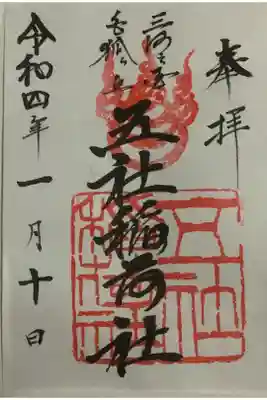 奉拝
三河之国
五社稲荷社
令和四年一月十日